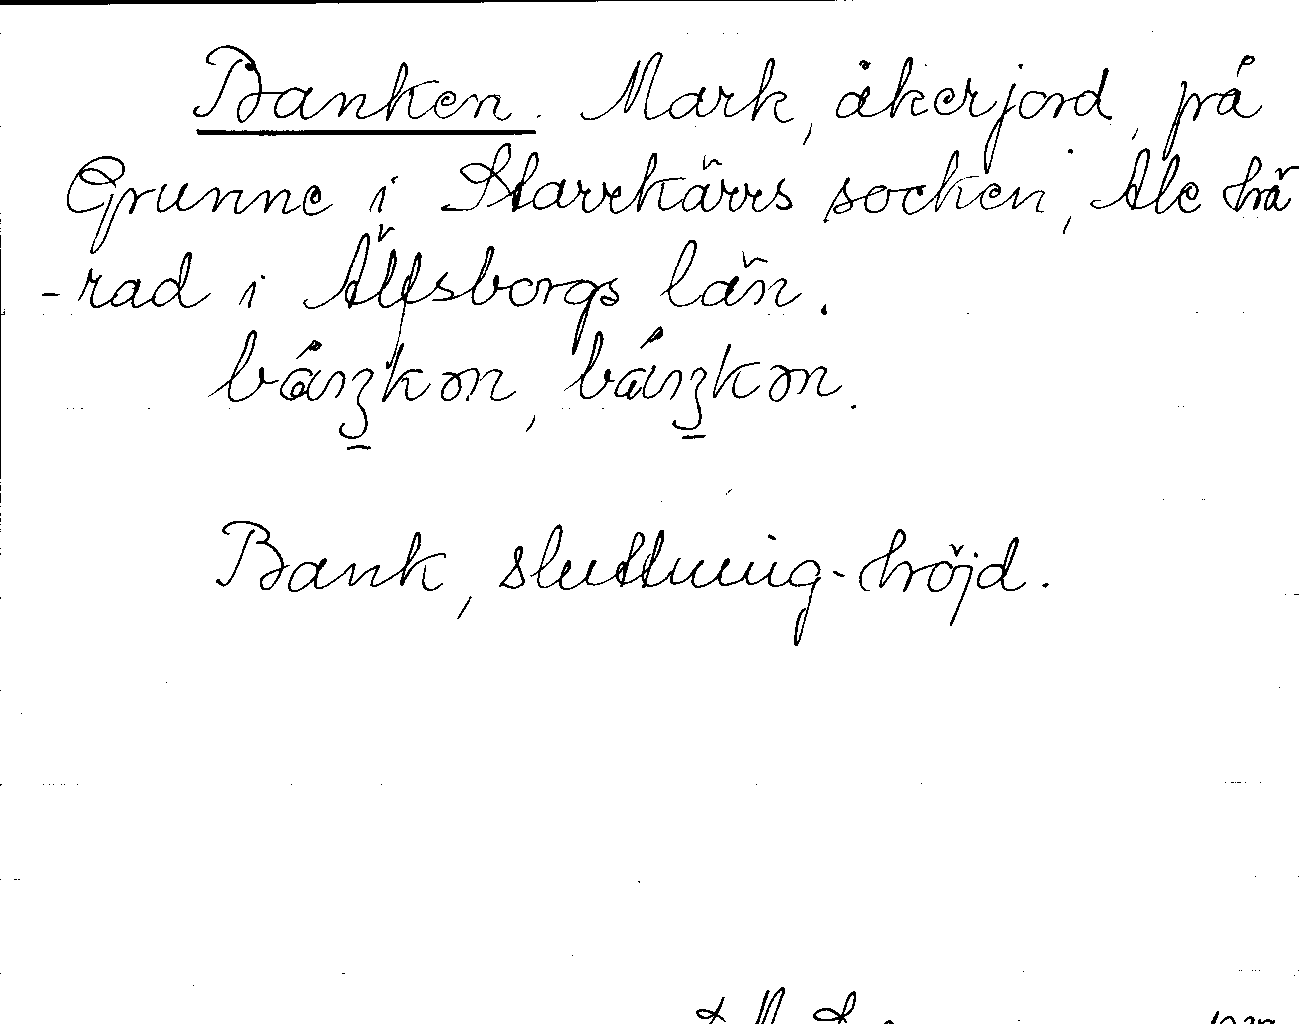 Banken. Mark, åkerjord, på
Grunne i Starrkärrs socken, Ale hä
-rad i Älfsborgs län.
Bank, sluttning-höjd.